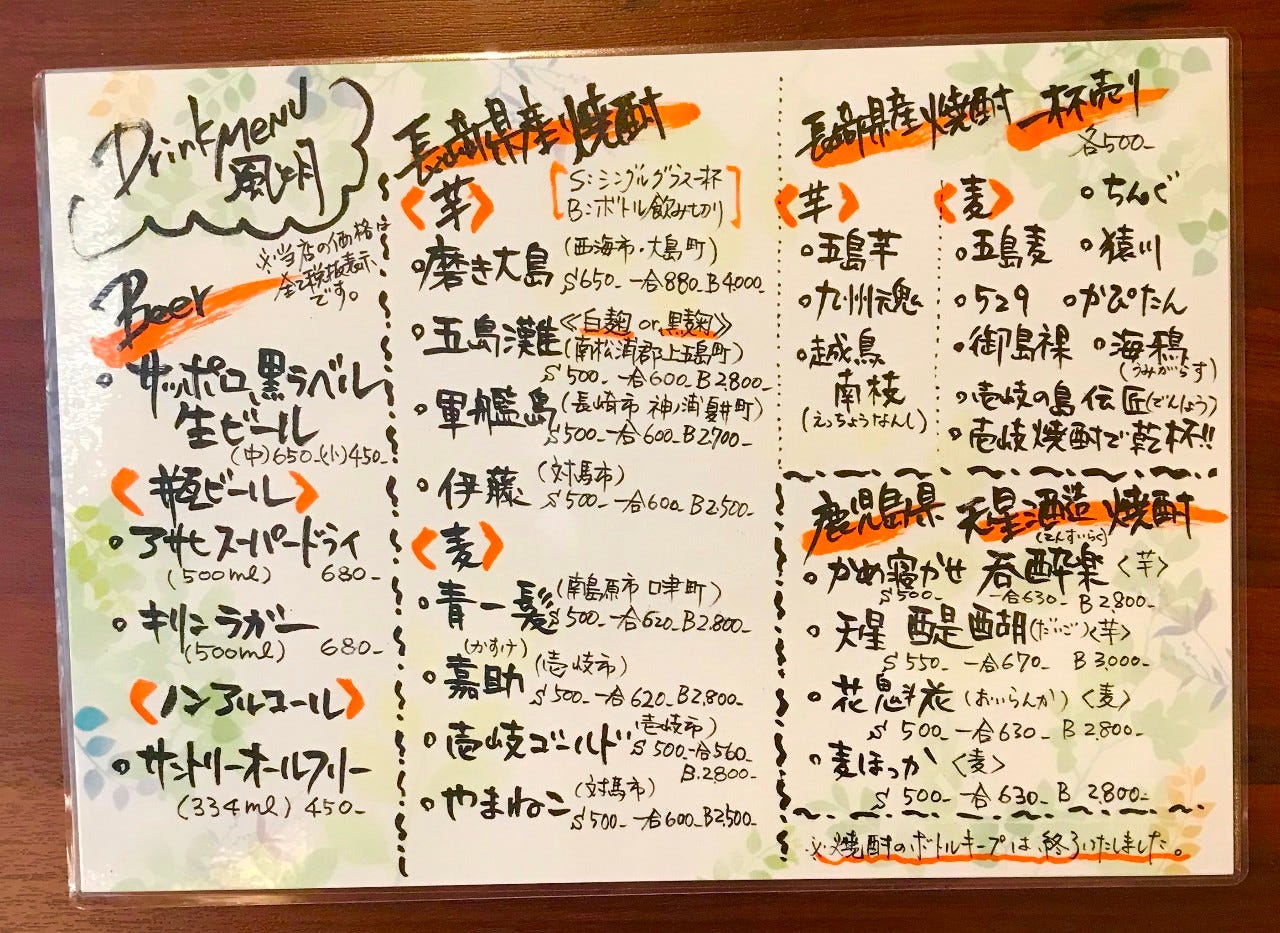 Drink MENU
風月
※当店の価格は
全て税抜表示
です。
Beer
サッポロ黒ラベル
生ビール
(中)650-(小)450-
〈瓶ビール〉
アサヒスーパードライ
(500ml) 680-
キリンラガー
(500ml) 680-
〈ノンアルコール〉
サントリーオールフリー
(334ml) 450-
長崎県産焼酎
〈芋〉
S:シングルグラス一杯
B:ボトル飲み切り
磨き大島 (西海市・大島町)
S650- 一合880- B4000-
五島灘 《白麹 or 黒麹》
(南松浦郡上五島町)
S500- 一合600- B2,800-
軍艦島 (長崎市 神ノ浦夏井町)
S500- 一合600- B2,700-
伊藤 (対馬市)
S500- 一合600- B2,500-
〈麦〉
青一髪 (南島原市 口津町)
S500- 一合620- B2,800-
(かすけ)
嘉助 (壱岐市)
S500- 一合620- B2,800-
壱岐ゴールド (壱岐市)
S500- 一合560-
B.2800-
やまねこ (対馬市)
S500- 一合600- B2,500-
長崎県産焼酎 一杯売り
各500-
〈芋〉
五島芋
九州魂
越鳥
南枝
(えっちょうなんし)
〈麦〉
ちんぐ
五島麦
猿川
529
かぴたん
御島裸
海鴉
(うみがらす)
壱岐の島 伝匠(でんしょう)
壱岐焼酎で乾杯!!
鹿児島県 天星酒造 焼酎
(どんすいらく)
かめ寝かせ 呑酔楽 〈芋〉
S500- 一合630- B2,800-
天星 醍醐(だいご)〈芋〉
S550- 一合670- B3,000-
(おいらんか) 〈麦〉
S500- 一合630- B2,800-
麦ほっか 〈麦〉
S500- 一合630- B2,800-
※焼酎のボトルキープは、終了いたしました。